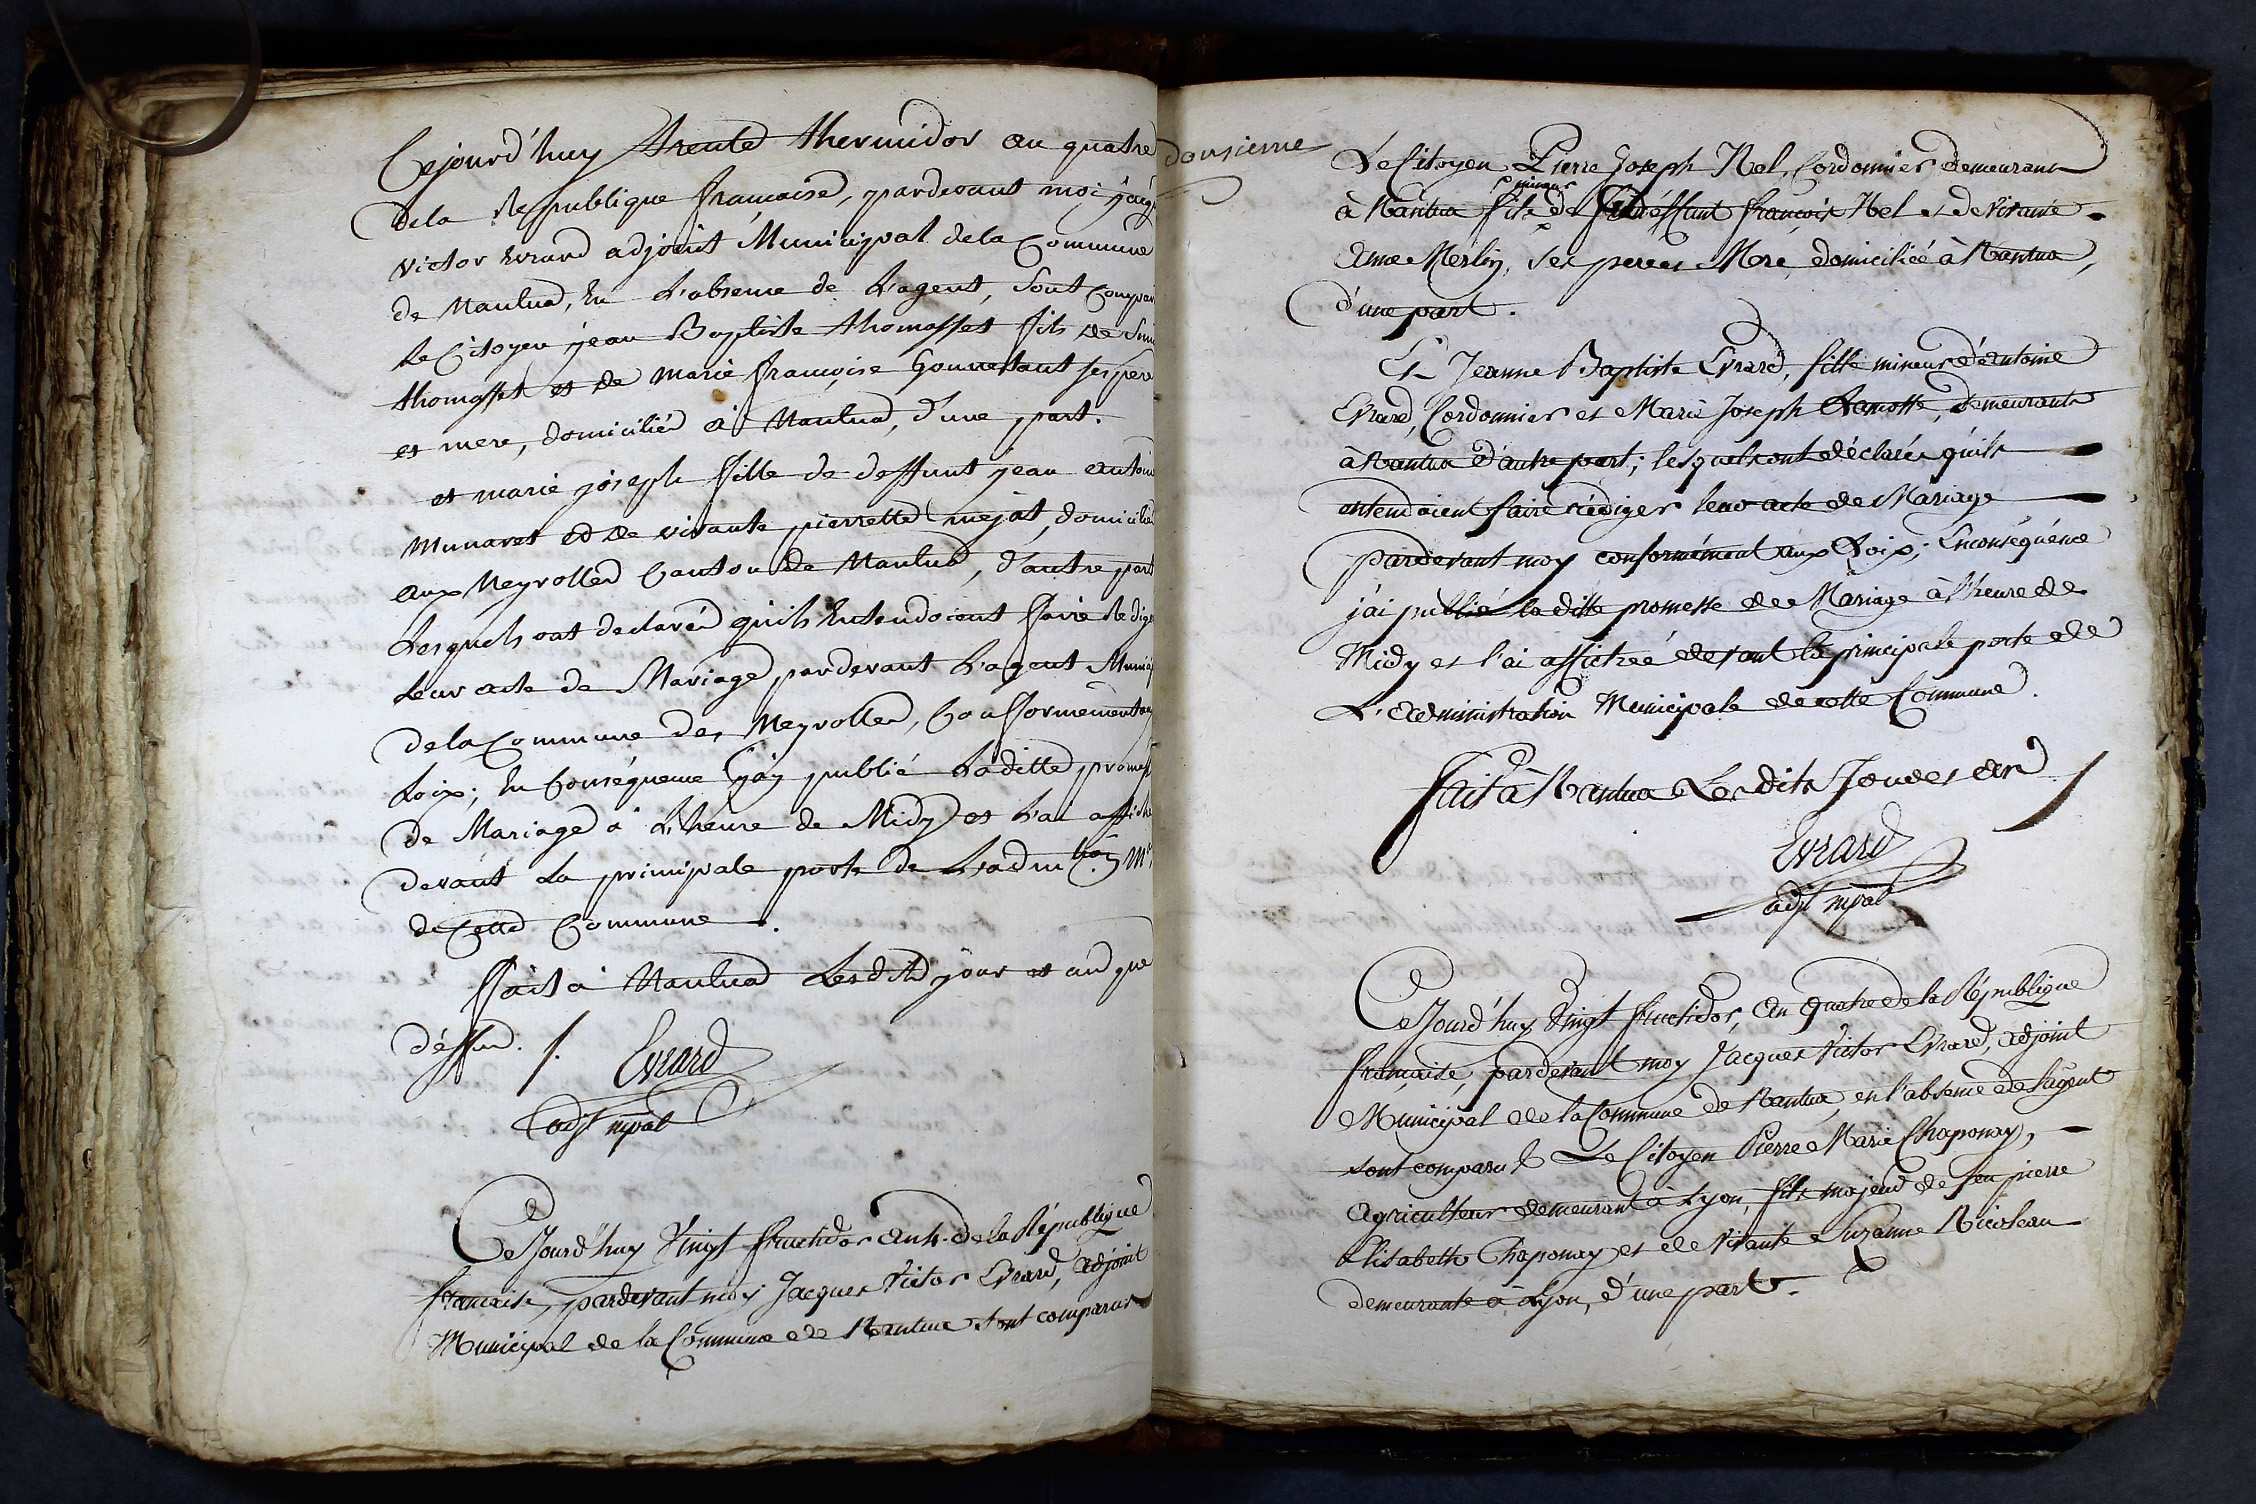 Cejourd'huy trente thermidor an quatre
de la Republique française, pardevant moi jacq
victor Evrard adjoint Municipal de la Commune
de Nantua, En L'absence de L'agent, sont Compar
Le Citoyen jean Baptiste thomasset fils de
thomasset et de marie françoise Gonnetant ses pere
et mere, domicilié à Nantua, d'une part.
et marie joseph fille de deffunt jean antoine
Munaret et de vivante pierrette mejat, domiciliée
aux Neyrolles Canton de Nantua, d'autre part
Lesquels ont declaré qu'ils Entendoient faire Redige
Leur acte de Mariage pardevant L'agent Munici
de la Commune des Neyrolles, Conformément aux
Loix; En Conséquence j'ay publié Laditte promes
de Mariage à L'heure de Midy et L'ai affiché
devant La principale porte de L'adm.tion M.
de Cette Commune.
fait à Nantua Lesdits jour et an que
dessus. /. Evrard
adjt mpal
Cejourd'huy Vingt fructidor an 4. de la République
française, pardevant moy Jacques Victor Evrard, adjoint
Municipal de la Commune de Nantua sont comparus
douzieme
Le Citoyen Pierre Joseph Nel, Cordonnier demeurant
mineur
à Nantua fils de deffunt françois Nel et de Vivante
Anne Merlin, ses pere et Mere, domiciliée à Nantua,
d'une part.
Et Jeanne Baptiste Evrard, fille mineur d'antoine
Evrard, Cordonnier et Marie Joseph Lamotte, demeurante
à Nantua d'autre part; lesquels ont déclarés qu'ils
entendoient faire rédiger leur acte de Mariage
pardevant moy conformément aux Loix; Enconséquence
j'ai publié la ditte promesse de Mariage à l'heure de
Midy et l'ai affichée devant la principale porte de
L'administration Municipale de cette Commune.
fait à Nantua Les dits Jour et an /
Evrard
adjt mpal
Cejourd'huy Vingt fructidor, an quatre de la République
française, pardevant moy Jacques Victor Evrard, adjoint
Municipal de la Commune de Nantua, en l'absence de l'agent
sont comparus Le Citoyen Pierre Marie Chaponay,
Agriculteur demeurant à Lyon, fils majeur de feu pierre
Elisabeth Chaponay et de Vivante Suzanne Nicoleau
demeurante à Lyon, d'une part.